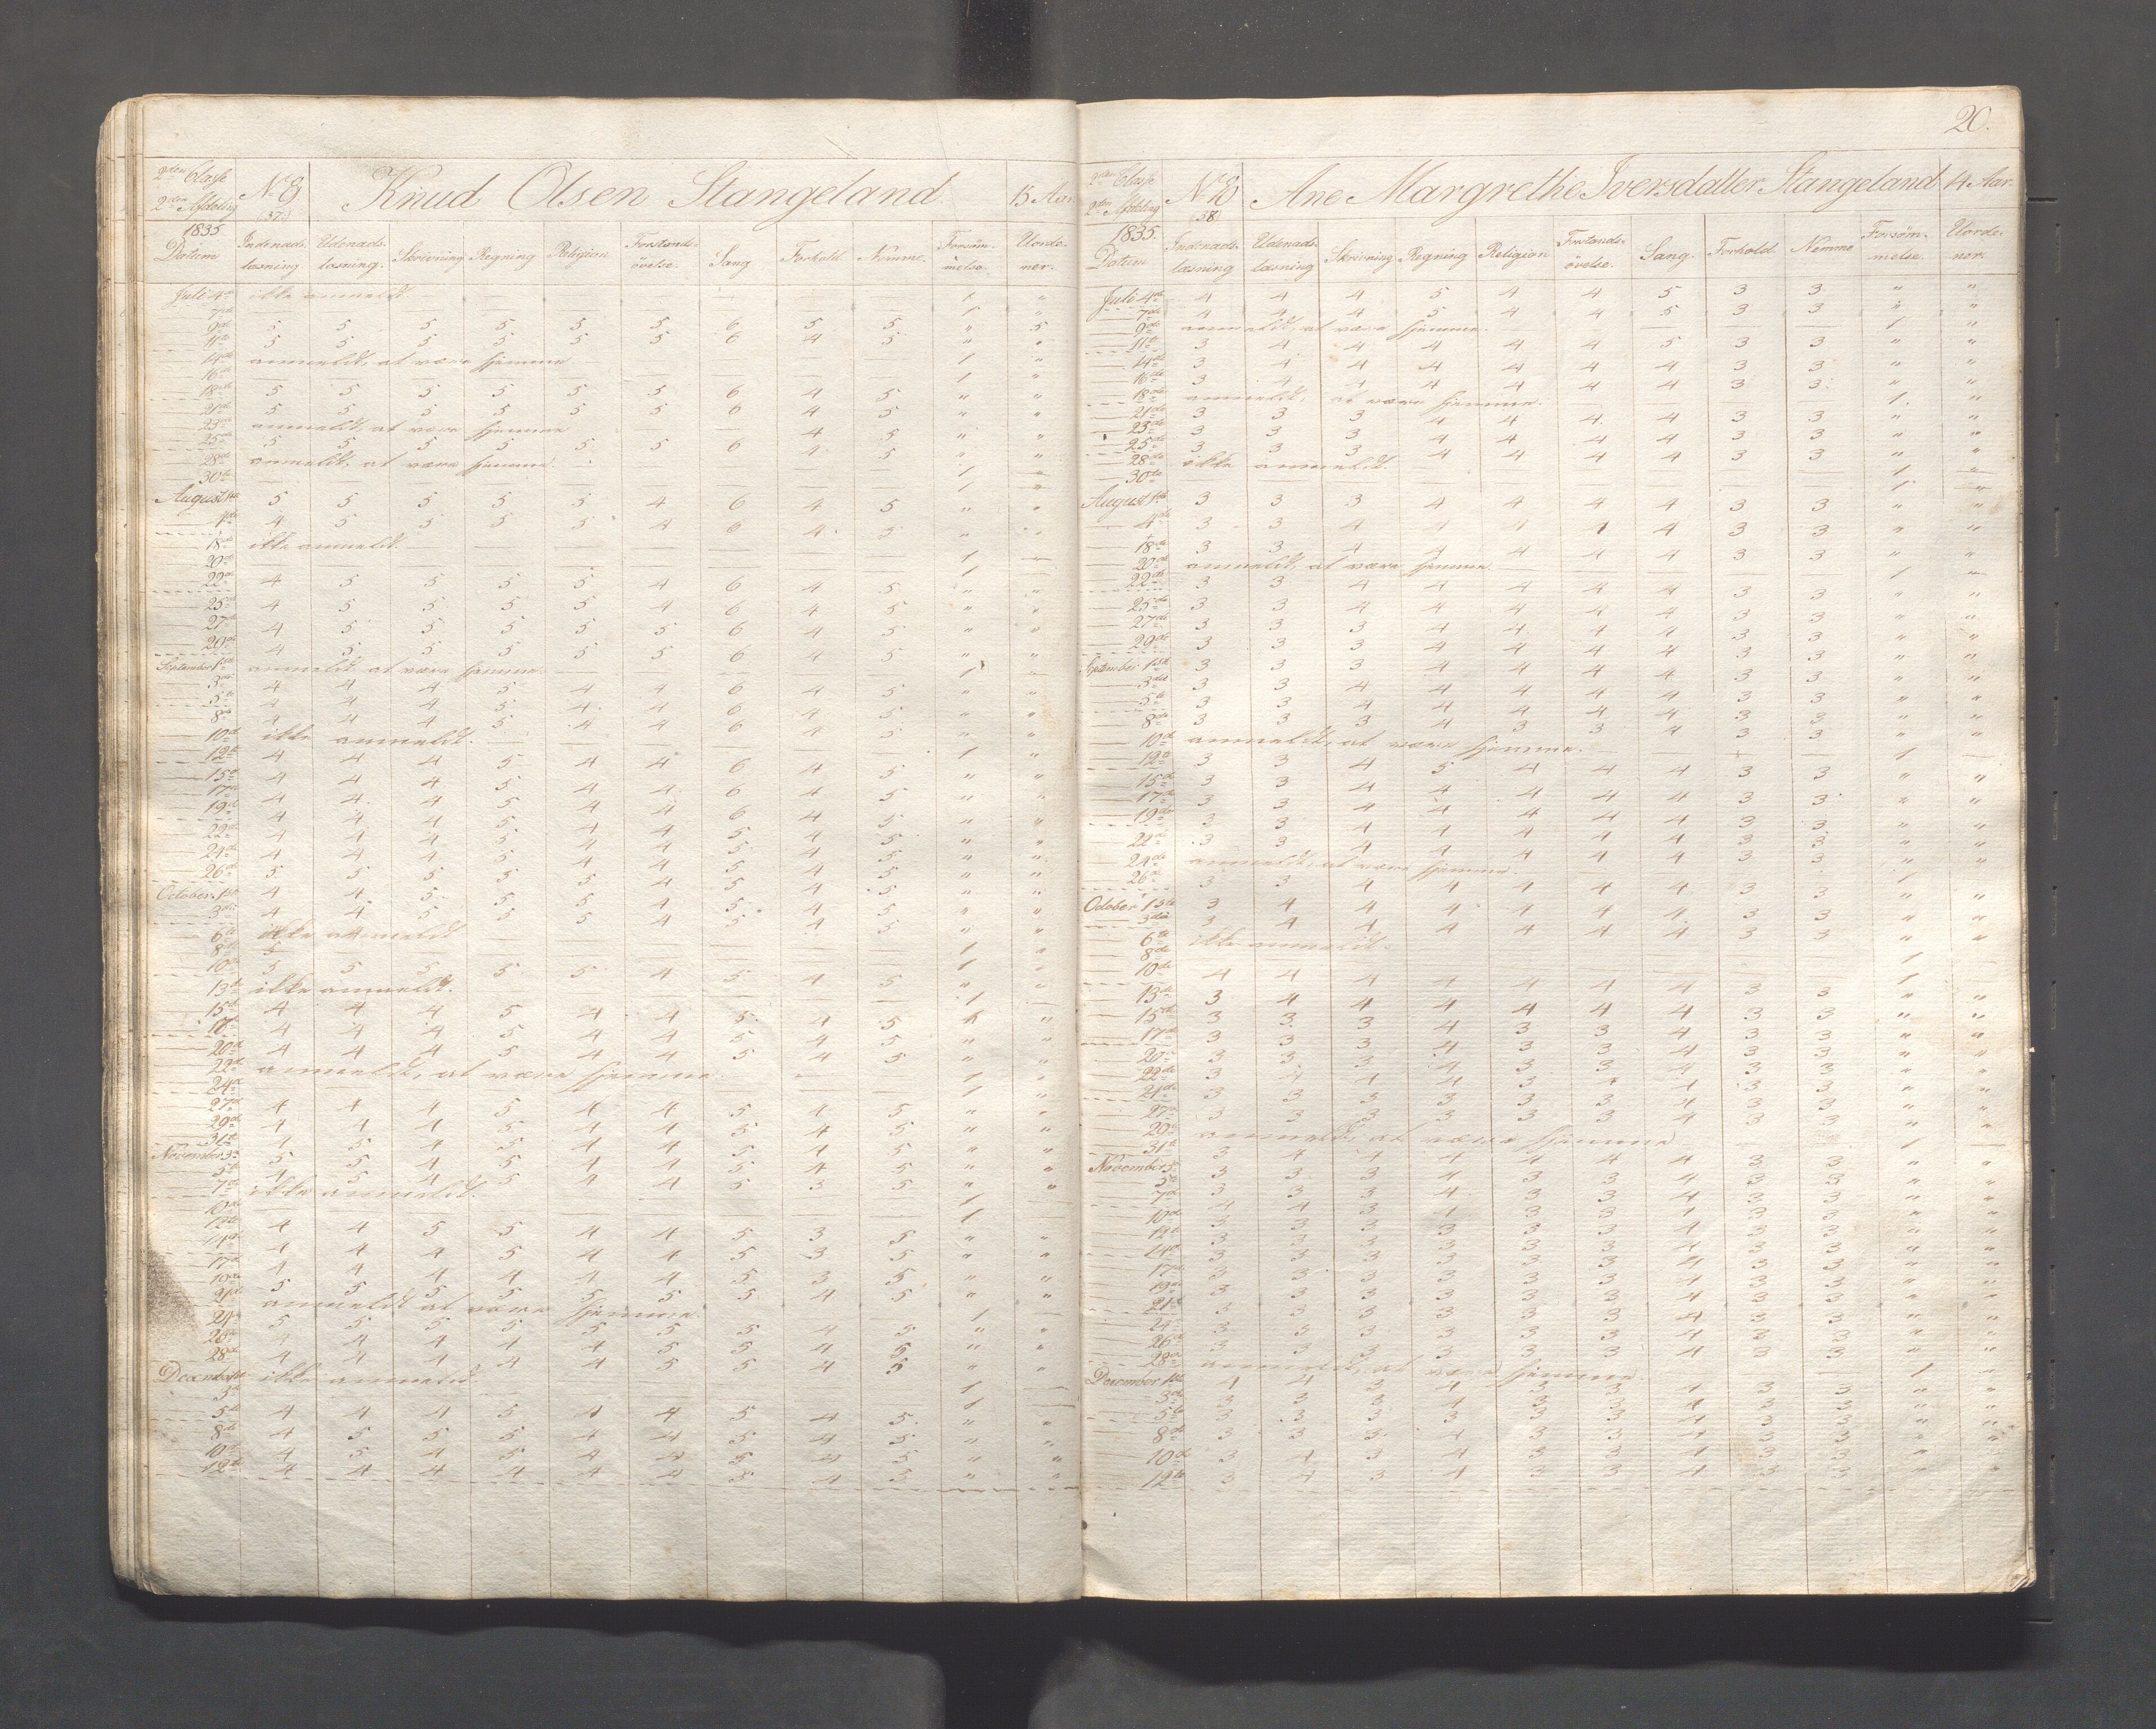 20.
2den Classe
2den Afdeling
No 8
(37.)
Knud Olsen Stangeland.
15 Aar.
1835
Datum
Indenads-læsning
Udenads-læsning.
Skrivning
Regning
Religion
Forstands-övelse.
Sang
Forhold
Nemme.
Forsöm-melse.
Uorde-ner.
Juli 4de ikke anmeldt. 1 "
7de 1 "
9de 5 5 5 5 5 5 6 5 5 " 5
11te 5 5 5 5 5 5 6 4 5 " "
14de anmeldt, at være hjemme 1 "
16de 1 "
18de 5 5 5 5 5 5 6 4 5 " "
21de 5 5 5 5 5 5 6 4 5 " "
23de anmeldt, at være hjemme
25de 5 5 5 5 5 5 6 4 5 " "
28de anmeldt, at være hjemme. 1 "
30te 1 "
August 1ste 5 5 5 5 5 4 6 4 5 " "
4de 4 5 5 5 5 4 6 4 5 " "
18de ikke anmeldt. 1
20de 1
22de 4 5 5 5 5 4 6 4 5 " "
25de 4 5 5 5 5 4 6 4 5 " "
27de 4 5 5 5 5 5 6 4 5 " "
29de 4 5 5 5 5 5 6 4 5 " "
September 1ste anmeldt, at være hjemme 1
3die 4 4 4 5 4 4 6 4 5 " "
5te 4 4 4 5 4 4 6 4 5 " "
8de 4 4 4 5 4 4 6 4 5 " "
10de ikke anmeldt. 1 "
12te 4 4 4 5 4 4 6 4 5 " "
15de 4 4 4 5 4 4 6 4 5 " "
17de 4 4 4 5 4 4 6 4 5 " "
19de 4 4 4 5 4 4 5 4 5 " "
22de 4 4 4 5 4 4 5 4 5 " "
24de 4 4 4 5 4 4 5 4 5 " "
26de 5 5 5 5 5 4 5 4 5 " "
October 1ste 4 4 5 5 5 4 5 4 5 " "
3die 4 4 5 5 5 4 5 4 5 " "
6te ikke anmeldt 1 "
8de 1 "
10de 5 5 5 5 5 4 5 4 5 " "
13de ikke anmeldt. 1
15de 4 4 4 5 4 4 5 4 5 "
17de 4 4 4 5 4 4 5 4 5 " "
20de 4 4 4 5 4 4 5 4 5 " "
22de anmeldt, at være hjemme 1 "
24de 1 "
27de 4 4 4 5 4 4 5 4 5 " "
29de 4 4 4 5 4 4 5 4 5 " "
31te 4 5 4 5 4 4 5 4 5 " "
November 3
5te
7de ikke anmeldt. 1
10de 1
12te 4 4 5 5 4 4 5 3 5 " "
14de 4 4 4 5 4 4 5 3 5 " "
17de 4 4 4 4 4 4 5 3 5 " "
19de 5 5 5 5 5 5 5 4 5 " "
21de anmeldt at være hjemme 1
24de 5 5 5 5 5 5 5 4 5 " "
26de 4 4 4 4 4 5 5 4 5 " "
28de 4 4 4 4 4 5 5 4 5 " "
December 1ste ikke anmeldt. 1
3die 1
5te 4 4 4 5 4 4 5 4 5 " "
8de 4 5 5 5 4 4 5 4 5 " "
10de 4 5 4 5 4 4 5 4 5 " "
12te 4 4 4 4 4 4 5 4 5 " "
2den Classe
2den Afdeling
No 8
(38)
Ane Margrethe Iversdatter Stangeland
14 Aar.
1835.
Datum
Indenads-læsning
Udenads-læsning
Skrivning
Regning
Religion
Forstands-övelse.
Sang.
Forhold
Nemme
Forsöm-melse.
Uorde-ner.
Juli 4de 4 4 4 5 4 4 5 3 3 " "
7de 4 4 4 5 4 4 5 3 3 " "
9de anmeldt, at være hjemme. 1 "
11te 3 4 4 4 4 4 5 3 3 " "
14de 3 4 4 4 4 4 4 3 3 " "
16de 3 4 4 4 4 4 4 3 3 " "
18de anmeldt, at være hjemme. 1 "
21de 3 3 3 4 4 4 4 3 3 " "
23de 3 3 3 4 4 4 4 3 3 " "
25de 3 3 3 4 4 4 4 3 3 " "
28de ikke anmeldt. 1 "
30te 1 "
August 1ste 3 3 3 4 4 4 4 3 3 " "
4de 3 3 4 4 4 4 4 3 3 " "
18de 3 3 4 4 4 4 4 3 3 " "
20de anmeldt, at være hjemme. 1 "
22de 3 3 4 4 4 4 4 3 3 " "
25de 3 3 4 4 4 4 4 3 3 " "
27de 3 3 3 4 4 4 4 3 3 " "
29de 3 3 3 4 4 4 4 3 3 " "
September 1ste 3 3 3 4 4 4 4 3 3 " "
3die 3 3 4 4 4 4 4 3 3 " "
5te 3 3 4 4 4 4 4 3 3 " "
8de 3 3 3 4 3 3 4 3 3 " "
10de anmeldt, at være hjemme. 1
12te 3 3 4 5 4 4 4 3 3 " "
15de 3 3 4 4 4 4 4 3 3 " "
17de 3 3 4 4 4 4 4 3 3 " "
19de 3 3 4 4 4 4 4 3 3 " "
22de 3 3 4 4 4 4 4 3 3 " "
24de anmeldt, at være hjemme. 1
26de 3 3 4 4 4 4 4 3 3 " "
October 1ste 3 4 4 4 4 4 4 3 3 " "
3die 3 4 4 4 4 4 4 3 3 " "
6te ikke anmeldt. 1
8de 1
10de 4 4 4 4 4 4 4 3 3 " "
13de 3 4 4 4 4 4 4 3 3 " "
15de 3 3 3 4 3 3 4 3 3 " "
17de 3 3 3 4 3 3 4 3 3 " "
20de 3 3 3 4 3 3 4 3 3 " "
22de 3 4 4 4 3 4 4 3 3 " "
24de 3 3 3 3 3 3 4 3 3 " "
27de 3 3 3 3 3 3 4 3 3 " "
29de anmeldt, at være hjemme 1
31te 3 4 4 4 4 4 4 3 3 " "
November 3 3 3 3 4 3 3 4 3 3 " "
5te 3 3 3 4 3 3 4 3 3 " "
7de 4 4 3 4 3 3 4 3 3 " "
10de 3 3 3 3 3 3 4 3 3 " "
12te 3 3 3 3 3 3 4 3 3 " "
14de 3 3 3 3 3 3 4 3 3 " "
17de 3 3 3 3 3 3 4 3 3 " "
19de 3 3 3 3 3 3 4 3 3 " "
21de 3 3 3 3 3 3 4 3 3 " "
24de 3 3 3 3 3 3 4 3 3 " "
26de 3 3 3 3 3 3 4 3 3 " "
28de anmeldt, at være hjemme. 1
December 1ste 4 4 3 4 3 3 4 3 3 " "
3die 3 3 3 4 3 3 4 3 3 " "
5te 3 3 3 3 3 3 4 3 3 " "
8de 3 3 3 4 3 3 4 3 3 " "
10de 3 4 3 4 3 3 4 3 3 " "
12te 3 4 3 4 3 3 4 3 3 " "